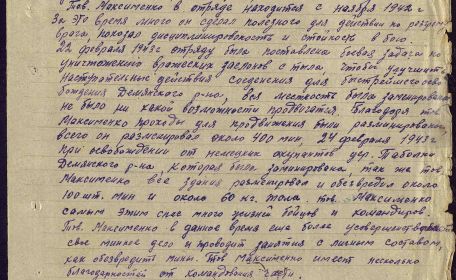 Тов. Максименко в отряде находится с ноября 1942 г
За это время много он сделал полезного для действии по разгром
врага, показал дисциплинированость и стойкость в бою.
22 февраля 1943г отряду была поставлена боевая задача по
уничтожению вражеских заслонов с тыла, чтобы улучшить
Наступательные действия соединения для быстрейшего осво-
бождения Демянского р-на, вся местность была заминирована
не было ни какой возможности продвигатся. Благодаря тов.
Максименко проходы для продвижения были разминированы
всего он разминировал около 400 мин, 24 февраля 1943г
при освобождении от немецких окупантов дер.
Демянского р-на, которая была заминирована, так же тов.
Максименко все здания разминировал и обезвредил около
100 шт. мин и около 60 кг. тола тов. Максименко
самым этим спас много жизней бойцов и командиров.
Тов. Максименко в данное время еще более усовершенствовал
свое минное дело и проводит занятия с личным составом,
как обезвредить мины. Тов Максименко имеет несколько
благодарностей от командования части.